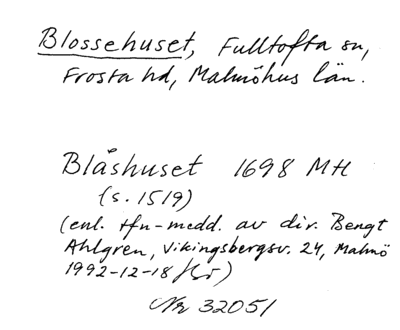 Blossehuset, Fulltofta sn,
Frosta hd, Malmöhus län.
Blåshuset 1698 MH
(s. 1519)
(enl. tfn-medd. av dir. Bengt
Ahlgren, Vikingsbergsv. 24, Malmö
1992-12-18
Nr 32051